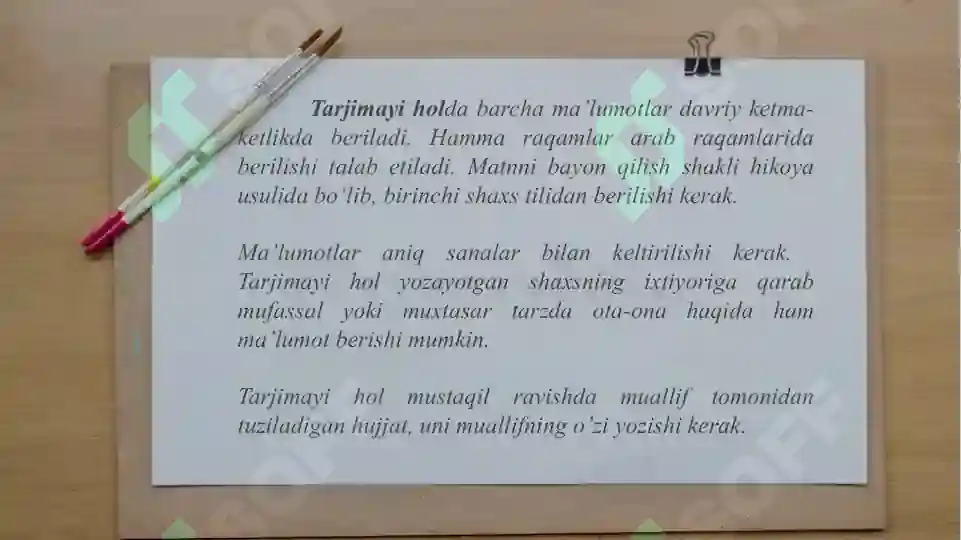 Tarjimayi holda barcha ma’lumotlar davriy ketma-
ketlikda beriladi. Hamma raqamlar arab raqamlarida
berilishi talab etiladi. Matnni bayon qilish shakli hikoya
usulida bo‘lib, birinchi shaxs tilidan berilishi kerak.
Ma’lumotlar aniq sanalar bilan keltirilishi kerak.
Tarjimayi hol yozayotgan shaxsning ixtiyoriga qarab
mufassal yoki muxtasar tarzda ota-ona haqida ham
ma’lumot berishi mumkin.
Tarjimayi hol mustaqil ravishda muallif tomonidan
tuziladigan hujjat, uni muallifning o’zi yozishi kerak.
SOFF
SOFF
SOFF
SOFF